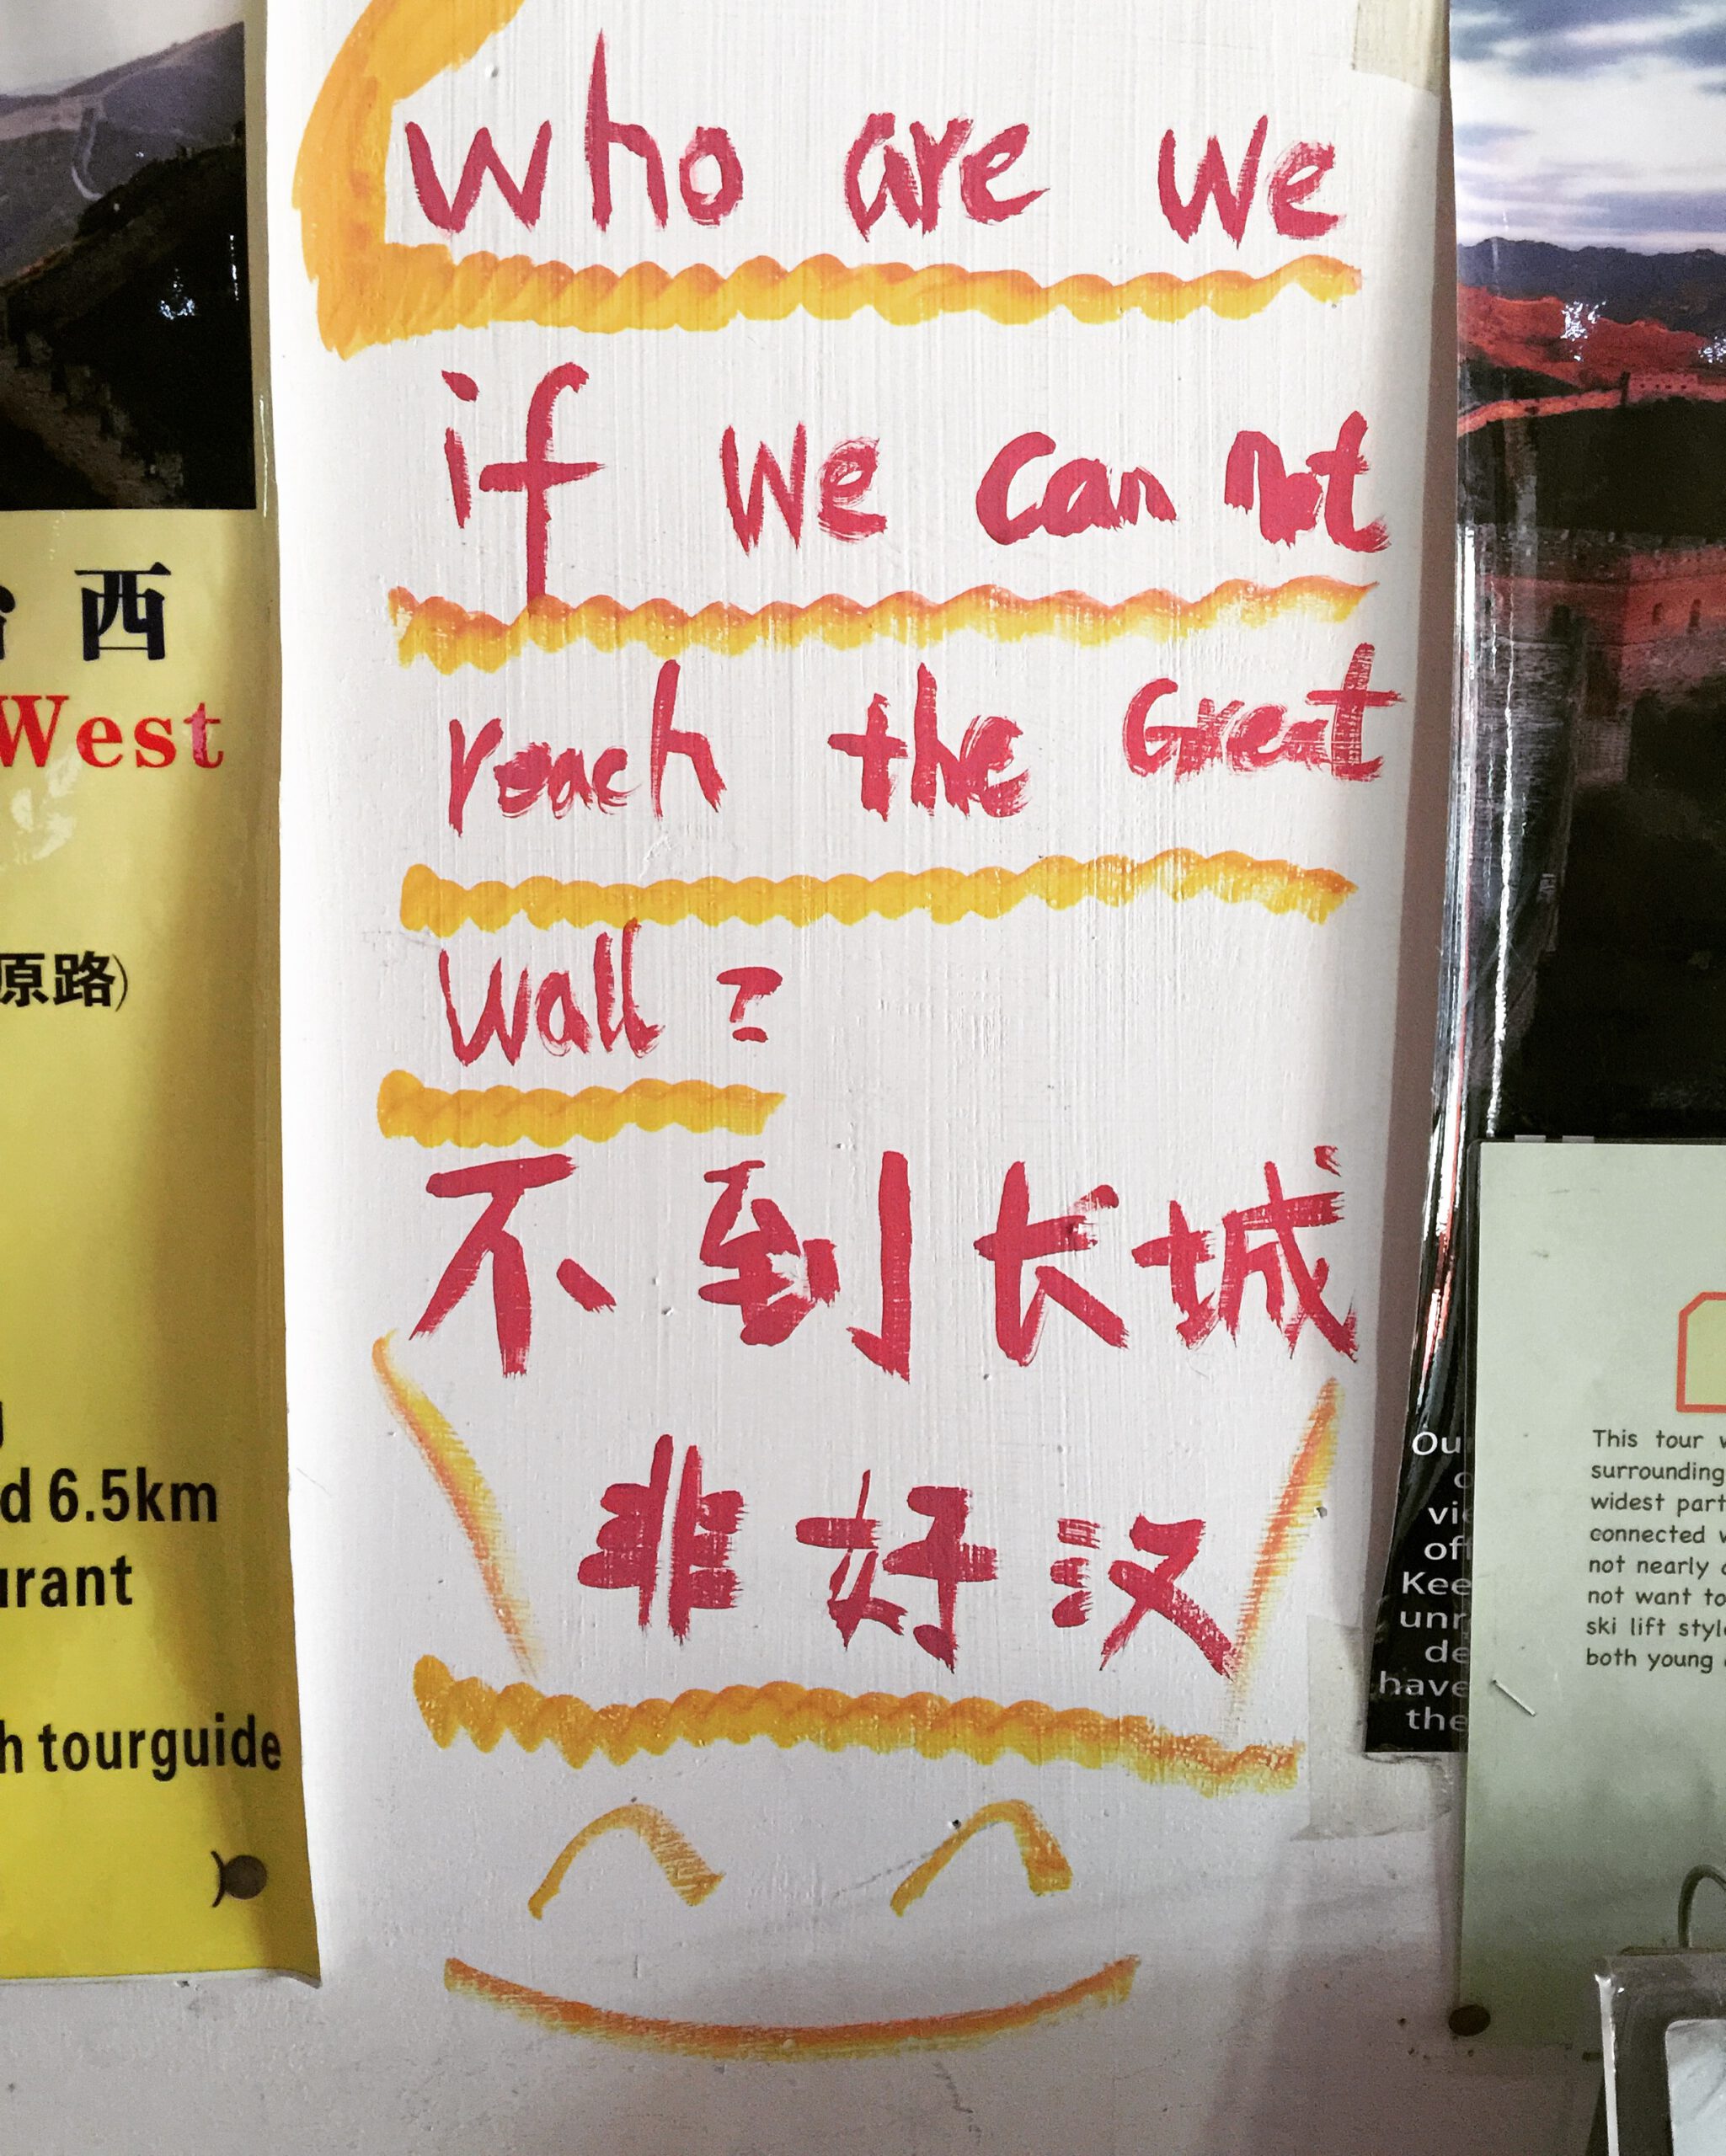 who are we
if we can not
reach the Great
Wall ?
不到长城
非好汉
西
West
原路)
d 6.5km
urant
h tourguide
Our
vie
off
Kee
unr
de
have
the
This tour w
surrounding
widest part
connected w
not nearly
not want to
ski lift style
both young